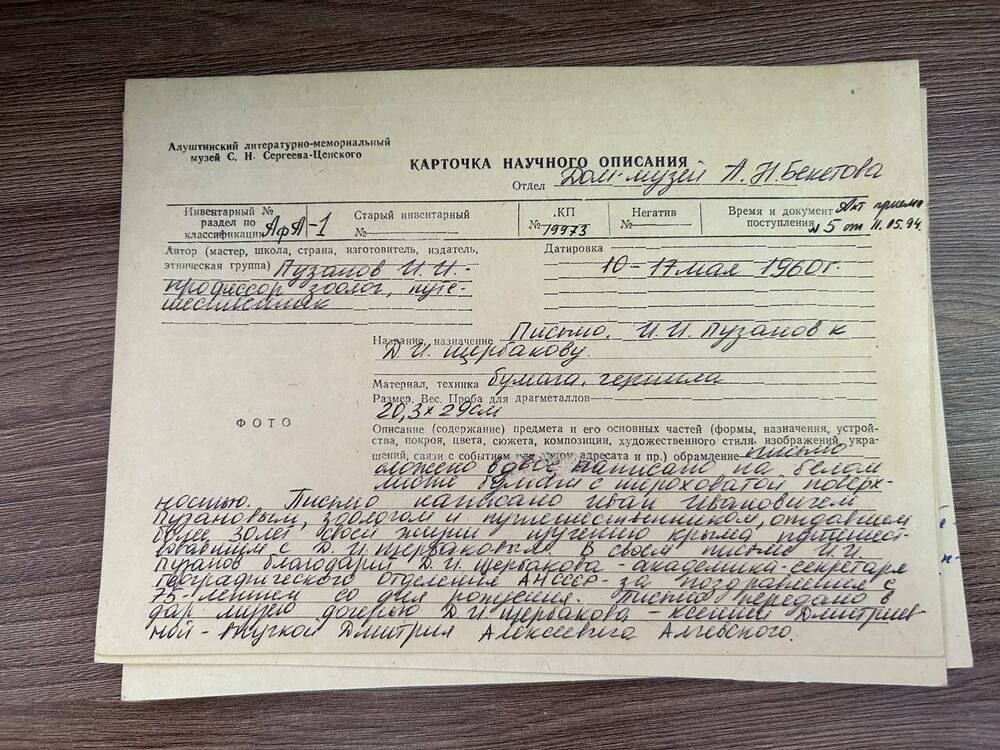 Алуштинский литературно-мемориальный
музей С. Н. Сергеева-Ценского
КАРТОЧКА НАУЧНОГО ОПИСАНИЯ
Отдел Дом-музей А.Н. Бекетова
Инвентарный №
раздел по
классификации АфА-1
Старый инвентарный
№
.КП
№ 19973
Негатив
№
Время и документ Акт приема
поступления № 5 от 11.05.94.
Автор (мастер, школа, страна, изготовитель, издатель,
этническая группа) Пузанов И. И. -
профессор зоолог, путе-
шественник
Датировка
10-17 мая 1960г.
Название, назначение Письмо. И.И. Пузанов к
Д.И. Щербакову.
Материал, техника бумага, чернила
Размер. Вес. Проба для драгметаллов
20,3 х 29см
ФОТО
Описание (содержание) предмета и его основных частей (формы, назначения, устрой-
ства, покроя, цвета, сюжета, композиции, художественного стиля, изображений, укра-
шений, связи с событием адресата и пр.) обрамление письмо
сложено вдвое написано на белом
листе бумаги с шероховатой поверх-
ностью. Письмо написано Иван Ивановичем
Пузановым, зоологом и путешественником, отдавшем
более 30 лет своей жизни изучению Крыма
с Д.И. Щербаковым. В своем письме И.И.
Пузанов благодарит Д.И. Щербакова - академика-секретаря
географического отделения АН СССР - за поздравления с
75-летием со дня рождения. Письмо передано в
дар музею дочерью Д.И. Щербакова - Ксенией Дмитриев-
ной - внучкой Дмитрия Алексеевича Алчевского.